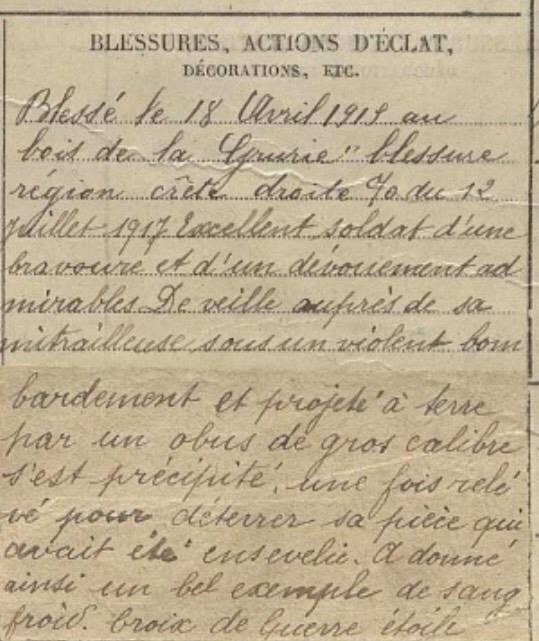 BLESSURES, ACTIONS D'ÉCLAT,
DÉCORATIONS, ETC.
Blessé le 18 Avril 1915 au
bois de la Grurie" blessure
région crête droite % du 12
juillet 1917 Excellent soldat d'une
bravoure et d'un dévouement ad
mirables De veille auprès de sa
mitrailleuse sous un violent bom
bardement et projeté à terre
par un obus de gros calibre
s'est précipité, une fois relé
vé pour déterrer sa pièce qui
avait été ensevelie. A donné
ainsi un bel exemple de sang
froid. Croix de Guerre étoile